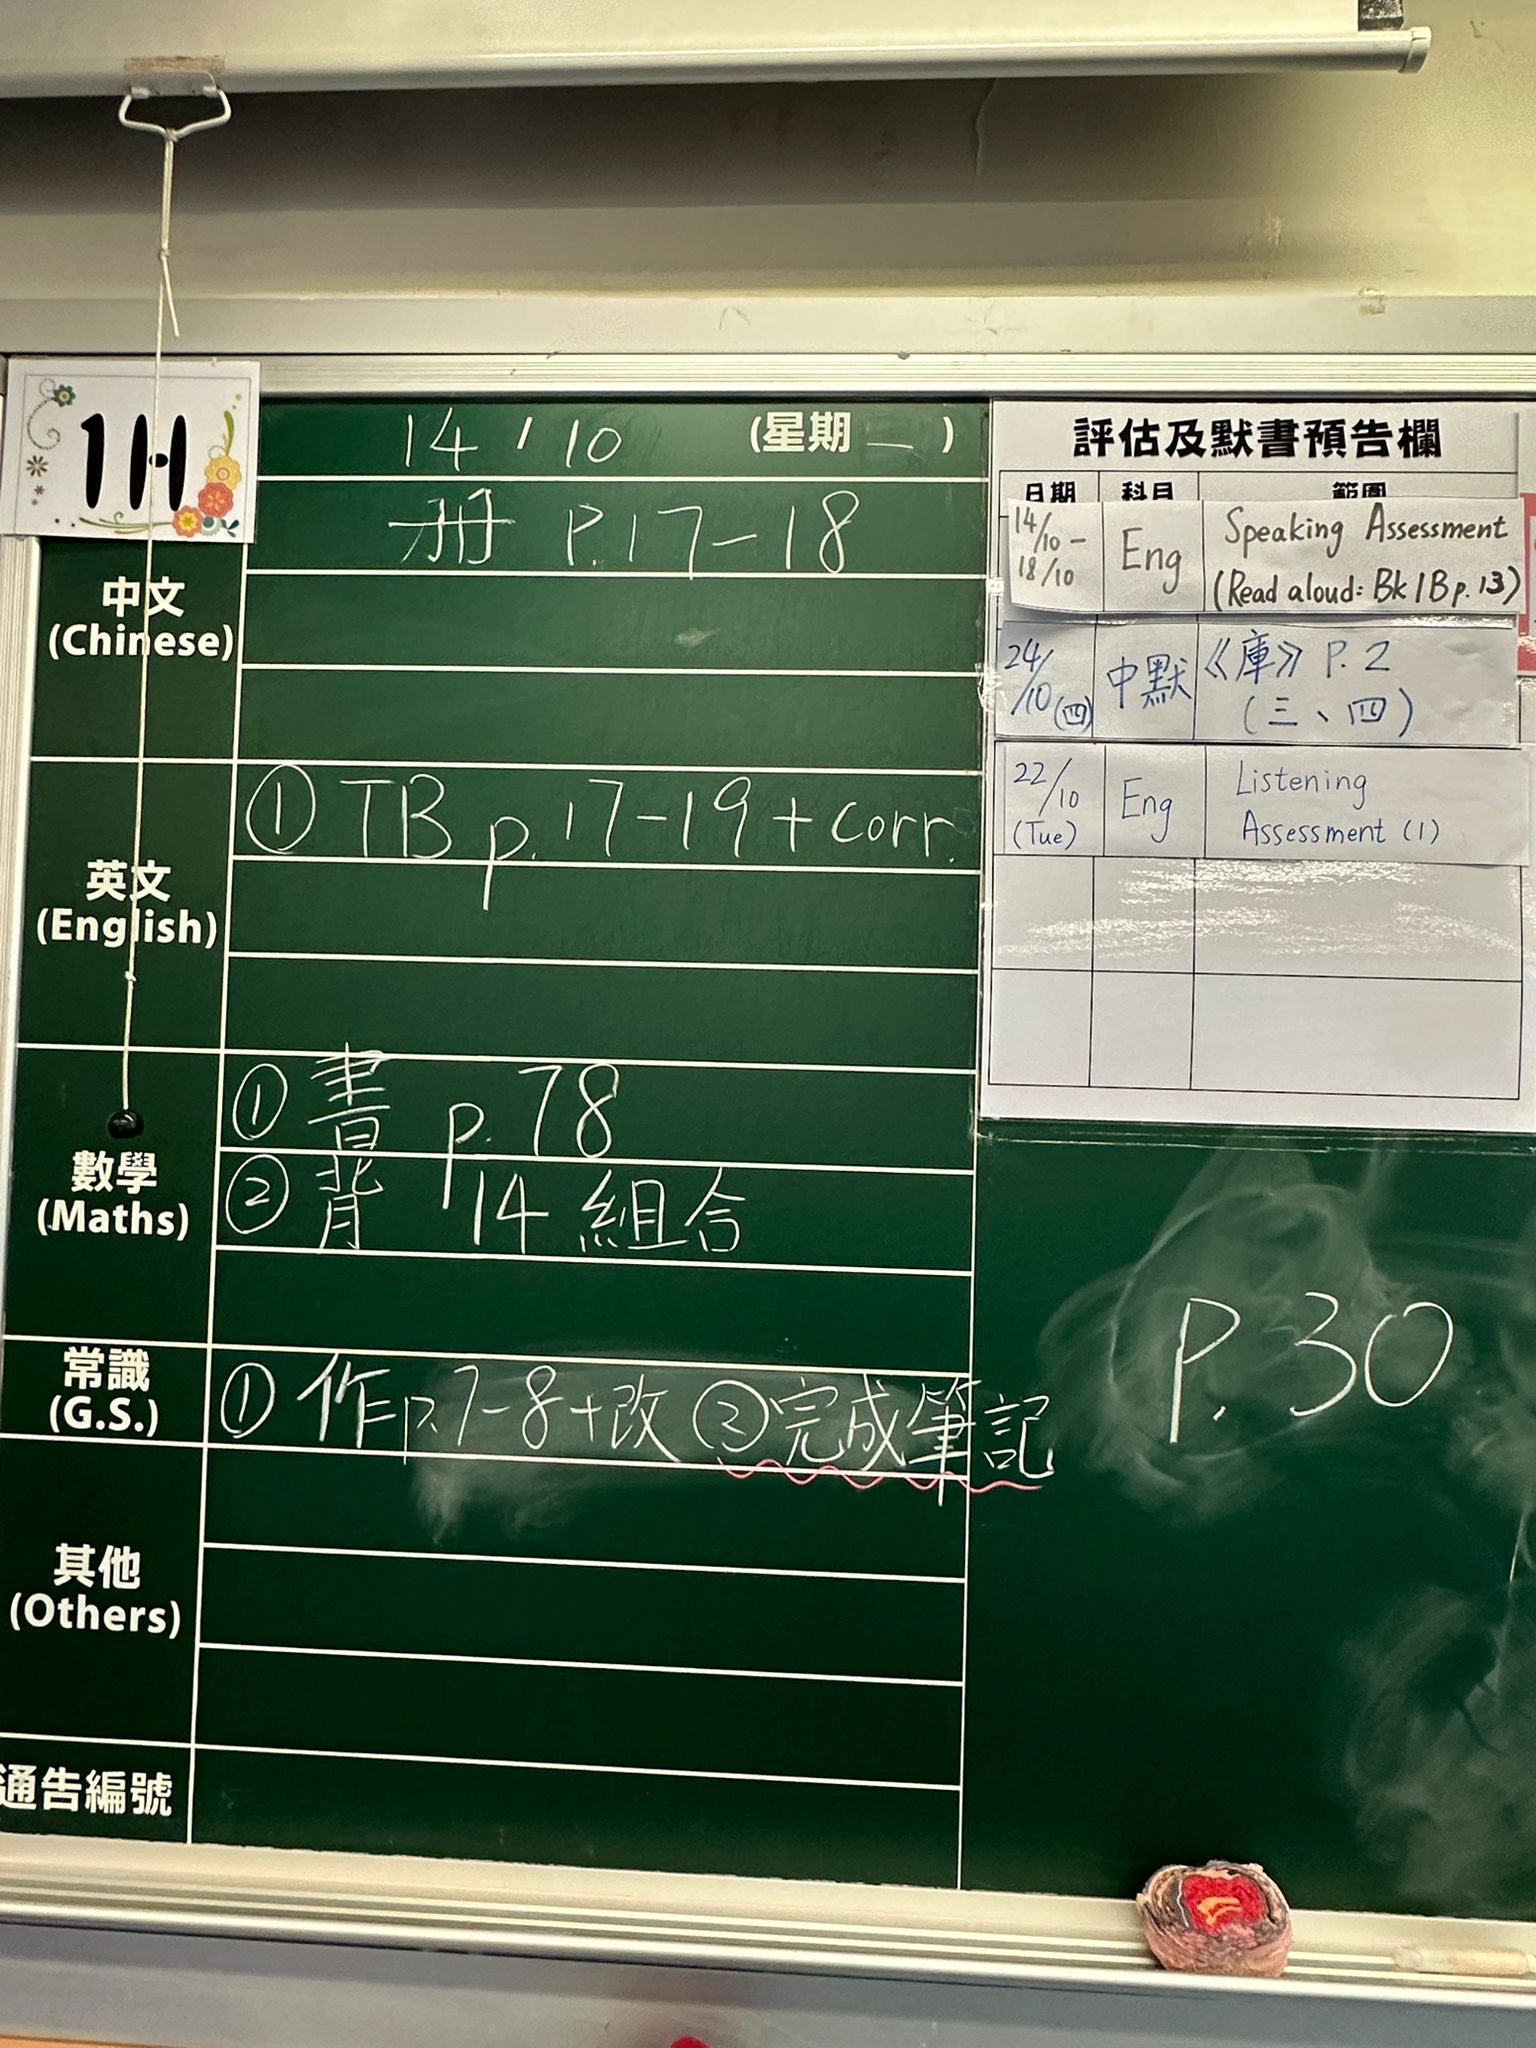 1H
14 / 10 (星期一)
中文
(Chinese)
册 P.17-18
英文
(English)
① TB p.17-19 + corr.
數學
(Maths)
① 書 p.78
② 背 14 組合
常識
(G.S.)
① 作p.7-8+改 ②完成筆記
其他
(Others)
通告編號
評估及默書預告欄
日期 科目 範圍
14/10 - 18/10 Eng Speaking Assessment
(Read aloud: Bk 1B p.13)
24/10 (四) 中默 《庫》 P.2
(三、四)
22/10 (Tue) Eng Listening
Assessment (1)
P.30